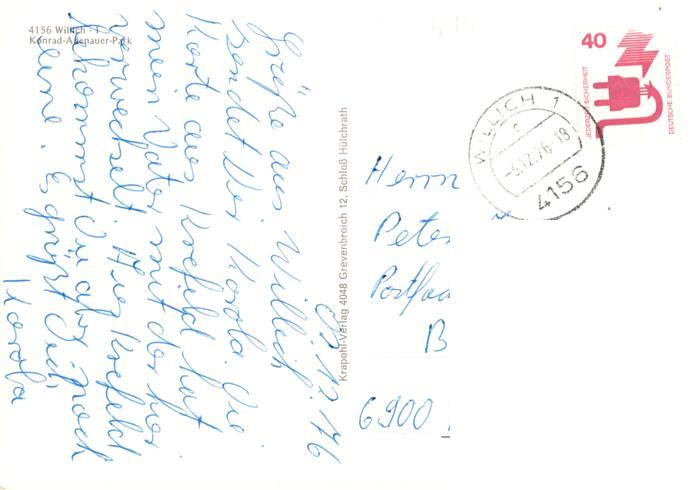 4156 Willich - 1
Konrad-Adenauer-Park
12.76
Grüße aus Willich
sendet Dir Karola. Die
Karte aus Krefeld hat
mein Vater mit der hier
verwechselt. Aus Krefeld
bekommst Du aber noch
eine. Es grüßt Dich
Karola
Krapohl-Verlag 4048 Grevenbroich 12, Schloß Hülchrath
40
JEDERZEIT SICHERHEIT
DEUTSCHE BUNDESPOST
WILLICH 1
c
-3.12.76-18
4156
Herrn
Peter
B
6900